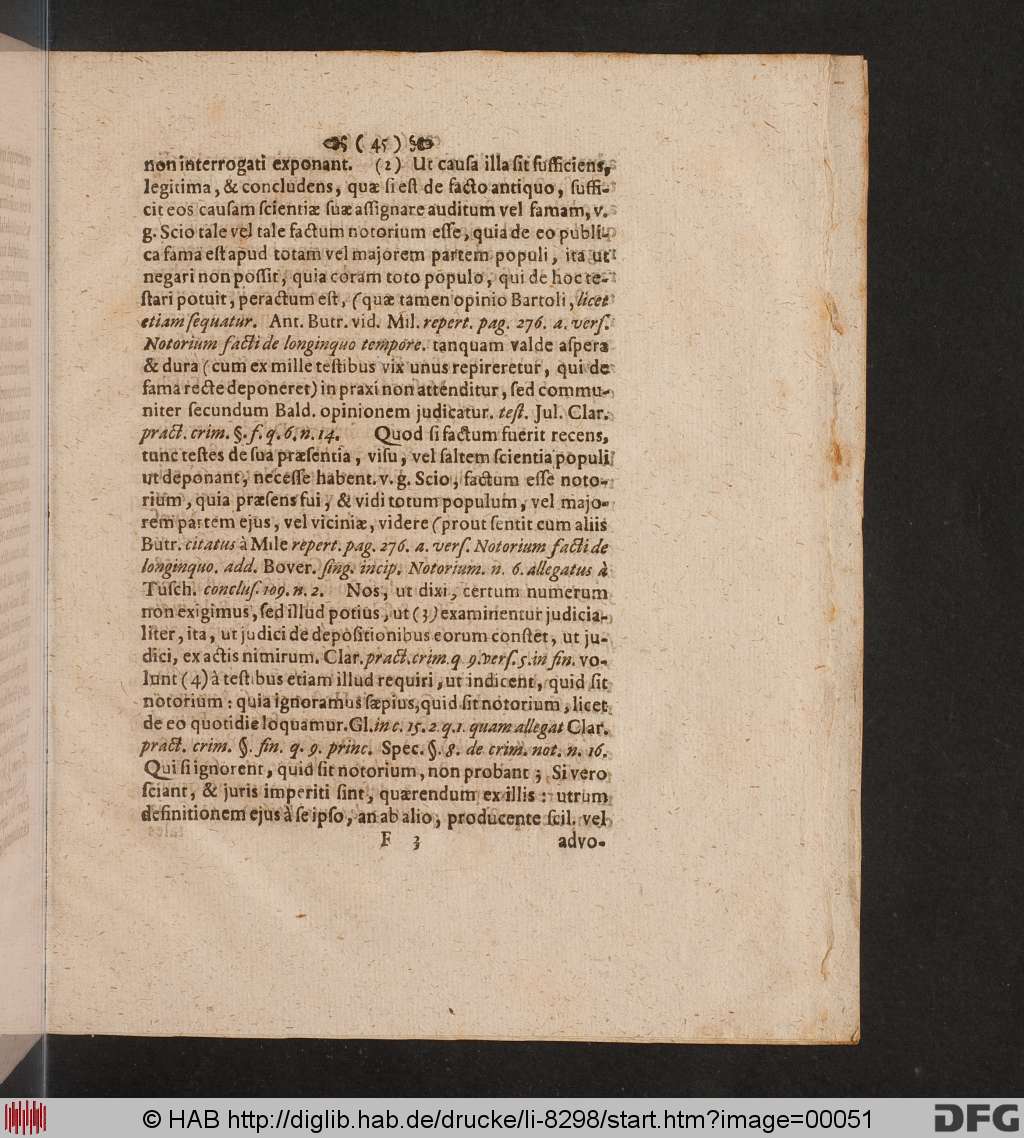 ( 45 )
non interrogati exponant. (2) Ut causa illa sit sufficiens,
legitima, & concludens, quæ si est de facto antiquo, suffi-
cit eos causam scientiæ suæ assignare auditum vel famam, v.
g. Scio tale vel tale factum notorium esse, quia de eo publi-
ca fama est apud totam vel majorem partem populi, ita ut
negari non possit, quia coram toto populo, qui de hoc te-
stari potuit, peractum est, (quæ tamen opinio Bartoli, licet
etiam sequatur. Ant. Butr. vid. Mil. repert. pag. 276. a. vers.
Notorium facti de longinquo tempore. tanquam valde aspera
& dura (cum ex mille testibus vix unus repireretur, qui de
fama recte deponeret) in praxi non attenditur, sed commu-
niter secundum Bald. opinionem judicatur. test. Jul. Clar.
pract. crim. §. f. q. 6. n. 14. Quod si factum fuerit recens,
tunc testes de sua præsentia, visu, vel saltem scientia populi
ut deponant, necesse habent. v. g. Scio, factum esse noto-
rium, quia præsens fui, & vidi totum populum, vel majo-
rem partem ejus, vel viciniæ, videre (prout sentit cum aliis
Butr. citatus à Mile repert. pag. 276. a. vers. Notorium facti de
longinquo. add. Bover. sing. incip. Notorium. n. 6. allegatus à
Tusch. conclus. 109. n. 2. Nos, ut dixi, certum numerum
non exigimus, sed illud potius, ut (3) examinentur judicia-
liter, ita, ut judici de depositionibus eorum constet, ut ju-
dici, ex actis nimirum. Clar. pract. crim. q 9. vers. 5. in fin. vo-
lunt (4) à testibus etiam illud requiri, ut indicent, quid sit
notorium: quia ignoramus sæpius, quid sit notorium, licet
de eo quotidie loquamur. Gl. in c. 15. 2. q. 1. quam allegat Clar.
pract. crim. §. fin. q. 9. princ. Spec. §. 8. de crim. not. n. 16.
Qui si ignorent, quid sit notorium, non probant; Si vero
sciant, & juris imperiti sint, quærendum ex illis: utrum
definitionem ejus à se ipso, an ab alio, producente scil. vel
F 3 advo-
© HAB http://diglib.hab.de/drucke/li-8298/start.htm?image=00051
DFG